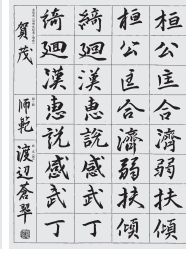 桓公匡合濟弱扶傾
桓公匡合濟弱扶傾
綺迴漢惠說感武丁
綺迴漢惠說感武丁
賀茂
師乾
渡辺蒼翠